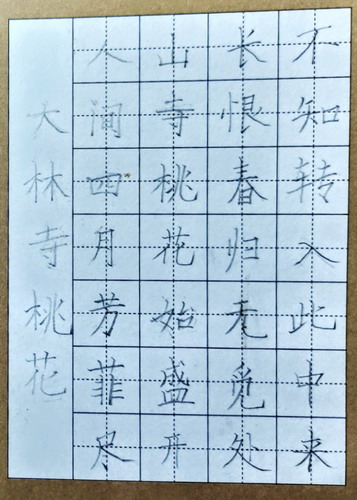 大林寺桃花
人间四月芳菲尽
山寺桃花始盛开
长恨春归无觅处
不知转入此中来